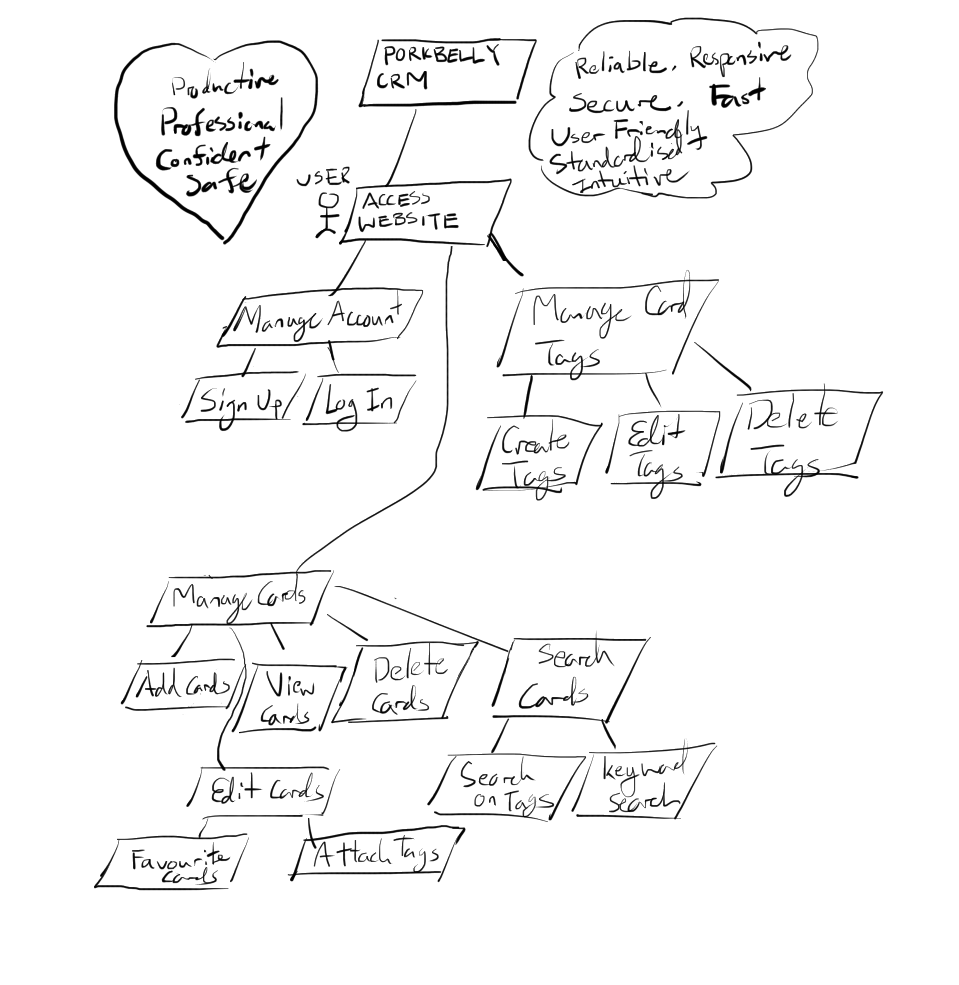 PORKBELLY
CRM
Productive
Professional
Confident
Safe
Reliable, Responsive
Secure, Fast
User Friendly
Standardised
Intuitive
USER
ACCESS
WEBSITE
Manage Account
Sign Up
Log In
Manage Card
Tags
Create
Tags
Edit
Tags
Delete
Tags
Manage Cards
Add Cards
View
Cards
Delete
Cards
Search
Cards
Edit Cards
Search
on Tags
Keyword
Search
Favourite
Cards
Attach Tags